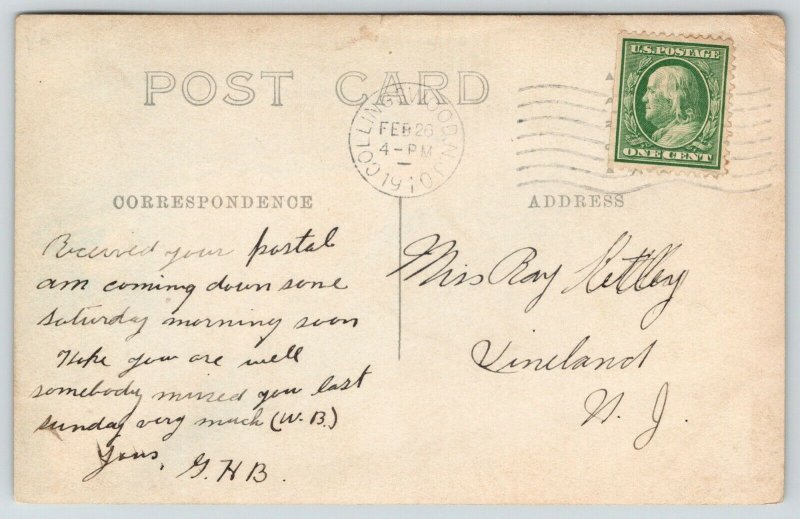 POST CARD
COLLINGSWOOD N.J.
FEB 26
4-PM
1910
U.S. POSTAGE
ONE CENT
CORRESPONDENCE
ADDRESS
Received your postal
am coming down some
saturday morning soon
Hope you are well
somebody missed you last
sunday very much (W.B.)
Yours,
G.H.B.
Miss Ray
Vineland
N. J.